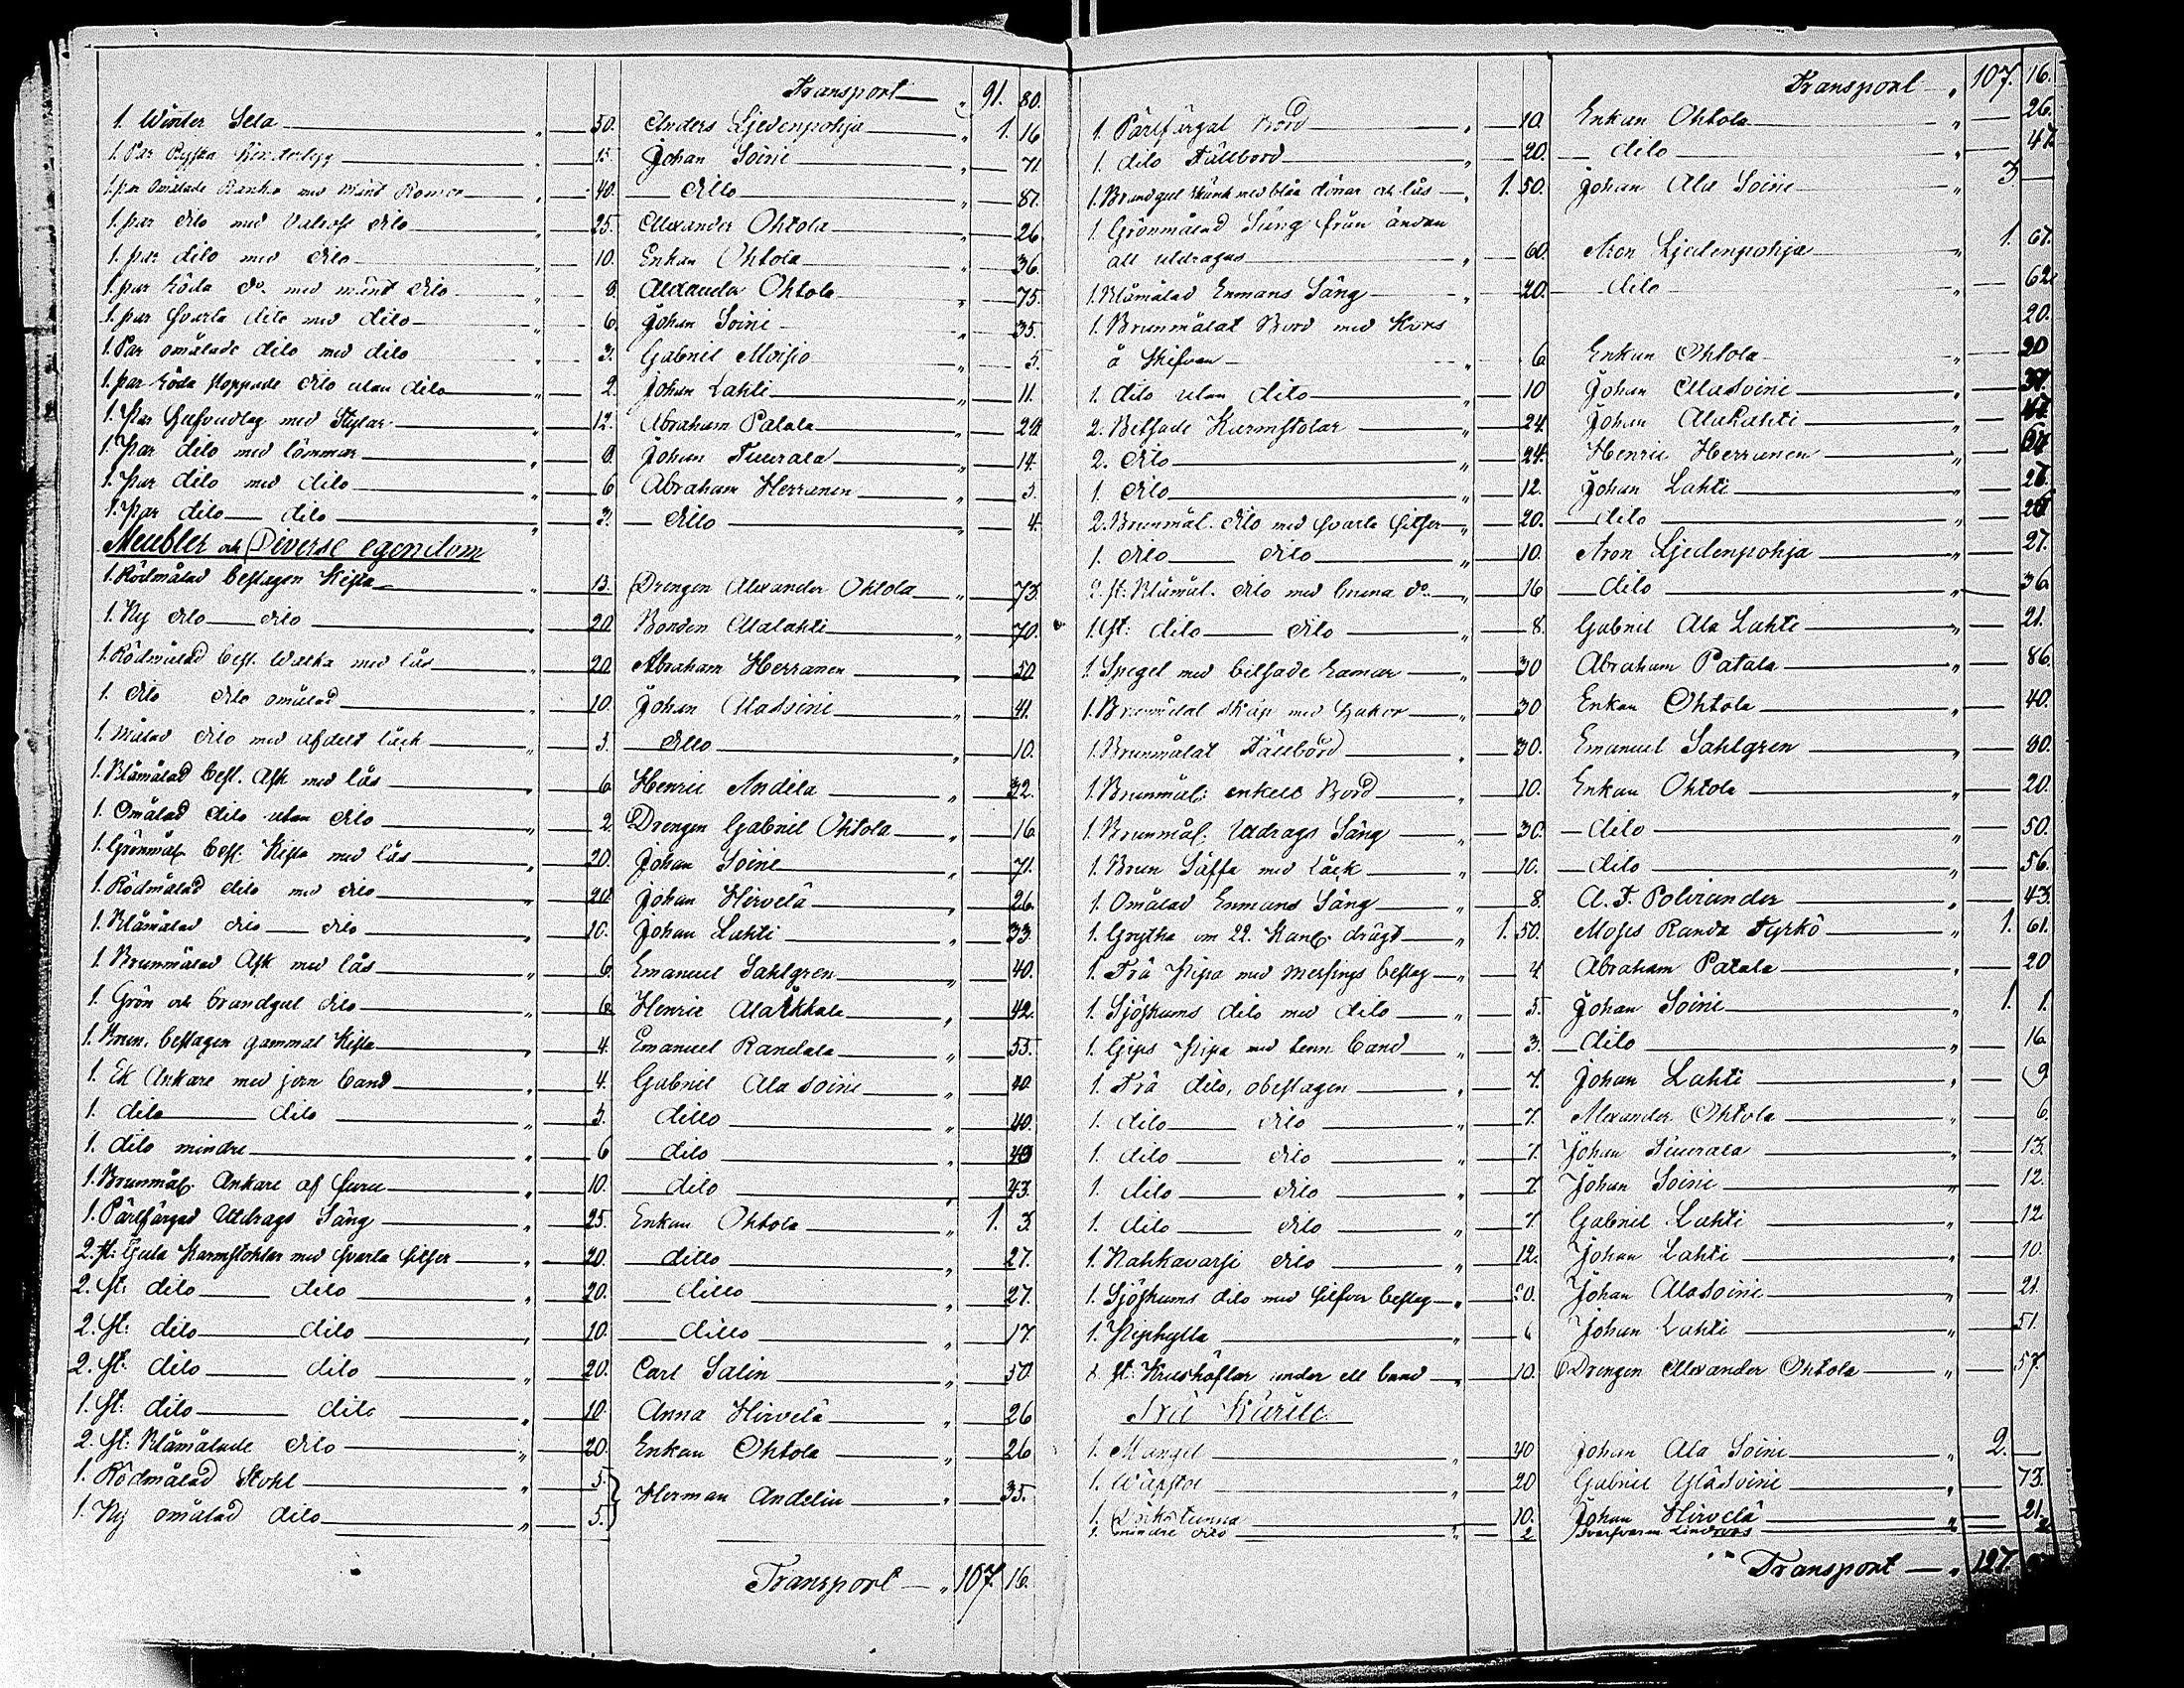 Transport " 91. 80.
1. Winter Sela " 50. Anders Ljedenpohja " 1. 16
1. Par Ryska " 15. Johan Soini " 71
1. par Omålade Ranko med " 40. ditto " 87.
1. par dito med dito " 25. Alexander Ohtola " 26
1. par dito med dito " 10. Enkan Ohtola " 36.
1. par Röda do. med dito " 9. Alexander Ohtola " 75.
1. par svarta dito med dito " 6. Johan Soini " 35.
1. Par omålade dito med dito " 3. Gabriel Moisio " 5.
1. par Röda stoppade dito utan dito " 2. Johan Lahti " 11.
1. Par Hufvudlag med Stylar " 12. Abraham Patala " 24
1. Par dito med lömmar " 8. Johan Tuurala " 14.
1. Par dito med dito " 6 Abraham Herranen " 5.
1. Par dito dito " 3. ditto " 4.
Meubler och Diverse egendom
1. Rödmålad beslagen Kista " 13. Drengen Alexander Ohtola " 73
1. Ny dito dito " 20 Bonden Alalahti " 70.
1. Rödmålad besl. Wakka med lås " 20 Abraham Herranen " 50
1. dito dito omålad " 10. Johan Alasoini " 41.
1. Målad dito med afdelt låck " 3. ditto " 10.
1. Blåmålad besl. Ask med lås " 6 Henric Andila " 32.
1. Omålad dito utan dito " 2. Drengen Gabriel Ohtola " 16
1. Grönmål. besl. Kista med lås " 20. Johan Soini " 71.
1. Rödmålad dito med dito " 20 Johan Hirvelä " 26
1. Blåmålad dito dito " 10. Johan Lahti " 33.
1. Brunmålad Ask med lås " 6 Emanuel Sahlgren " 40.
1. Grön och brandgul dito " 6 Henric Alaikkala " 42.
1. Brun, beslagen gammal Kista " 4. Emanuel Randala " 55.
1. Ek Ankare med jern band " 4. Gabriel Ala Soini " 40
1. dito dito " 3. ditto " 40.
1. dito mindre " 6 dito " 40
1. Brunmål. Ankare af furu " 10. dito " 43.
1. Pärlfärgad Utdrags Säng " 25. Enkan Ohtola " 1. 3
2. st: Gula Karmstohlar med svarta sitser " 20. ditto " 27.
2. st: dito dito " 20. ditto " 27.
2. st: dito dito " 10. ditto " 17.
2. st: dito dito " 20. Carl Salin " 50
1. st: dito dito " 10. Anna Hirvelä " 26
2. st: Blåmålade dito " 20. Enkan Ohtola " 26
1. Rödmålad Stohl " 5. Herman Andelin " 35.
1. Ny omålad dito " 5.
Transport " 107. 16.
Transport " 107. 16.
1. Pärlfärgat Bord " 10. Enkan Ohtola " 26.
1. dito Fällbord " 20. dito " 47.
1. Brandgul skänk med blåa dörrar och lås " 1. 50. Johan Ala Soini " 3.
1. Grönmålad Säng från ändan
att utdragas " 60. Aron Ljedenpohja " 1. 67.
1. Blåmålad Enmans Säng " 20. dito " 62
1. Brunmålat Bord med Kors 20.
å skifvan " 6 Enkan Ohtola " 20
1. dito utan dito " 10 Johan Alasoini
2. Betsade Karmstolar " 24 Johan Alalahti "
2. dito " 24. Henric Herranen "
1. dito " 12. Johan Lahti "
2. Brunmål. dito med svarta sitser " 20. dito "
1. dito dito " 10. Aron Ljedenpohja " 27.
2. st: Blåmål. dito med bruna do. " 16 dito " 36
1. st: dito dito " 8. Gabriel Ala Lahti " 21.
1. Spegel med betsade ramar " 30 Abraham Patala " 86.
1. Brunmålat skåp med " 30 Enkan Ohtola " 40.
1. Brunmålat Fällbord " 30. Emanuel Sahlgren " 80.
1. Brunmål: enkelt Bord " 10. Enkan Ohtola " 20.
1. Brunmål. Utdrags Säng " 30. dito " 50.
1. Brun Säffa med Låck " 10. dito " 56.
1. Omålad Enmans Säng " 8 A. F. Polviander " 43.
1. Grytha om 22. Kan. drägt " 1. 50. Moses Randa Tyrkö " 1. 61.
1. Trä Pipa med messings beslag " 4 Abraham Patala " 20
1. Sjöskums dito med dito " 5. Johan Soini " 1. 1.
1. Gips Pipa med tenn band " 3. dito " 16
1. Trä dito, obeslagen " 7. Johan Lahti " 9
1. dito dito " 7. Alexander Ohtola " 6.
1. dito dito " 7. Johan Tuurala " 13.
1. dito dito " 7 Johan Soini " 12.
1. dito dito " 7 Gabriel Lahti " 12
1. Nahkavarsi dito " 12. Johan Lahti " 10.
1. Sjöskums dito med silfver beslag " 20. Johan Alasoini " 21.
1. Piphylla " 6 Johan Lahti " 51.
8. st: under ett band " 10. Drengen Alexander Ohtola " 57.
Trä Kärile
1. Mangel " 40 Johan Ala Soini " 2.
1. Wäfstol " 20 Gabriel Alasoini " 73.
1. 10. Johan Hirvelä " 21.
1. mindre dito " 2 Svarfvaren Lindroos " 2
Transport " 127.